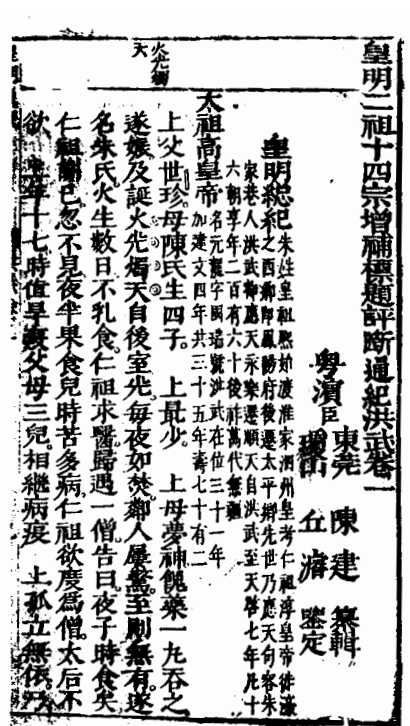 皇明二祖十四宗增補標題評斷通紀洪武卷一
粵濱臣東莞 陳建 纂輯
瓊山 丘濬 鑒定
皇明總紀朱姓皇祖熙始渡淮家泗州皇考仁祖淳皇帝徙濠
之西鄉卽鳳陽府後遷太平鄉先世乃應天句容朱
家巷人洪武都應天永樂遷順天自洪武至天啓七年凡十
六朝享年二百有六十後祥萬代無疆
太祖高皇帝名元龍字國瑞號洪武在位三十一年
加建文四年共三十五年壽七十有二
上父世珍母陳氏生四子 上最少 上母夢神饋藥一丸吞之
遂娠及誕火光燭天自後室光每夜如焚鄰人屢驚至則無有遂
名朱氏火生數日不乳食仁祖求醫歸遇一僧告曰夜子時食矣
仁祖謝已忽不見夜半果食兒時苦多病仁祖欲度爲僧太后不
欲 年十七時值旱父母三兒相繼病疫 上孤立無依
火光燭
天